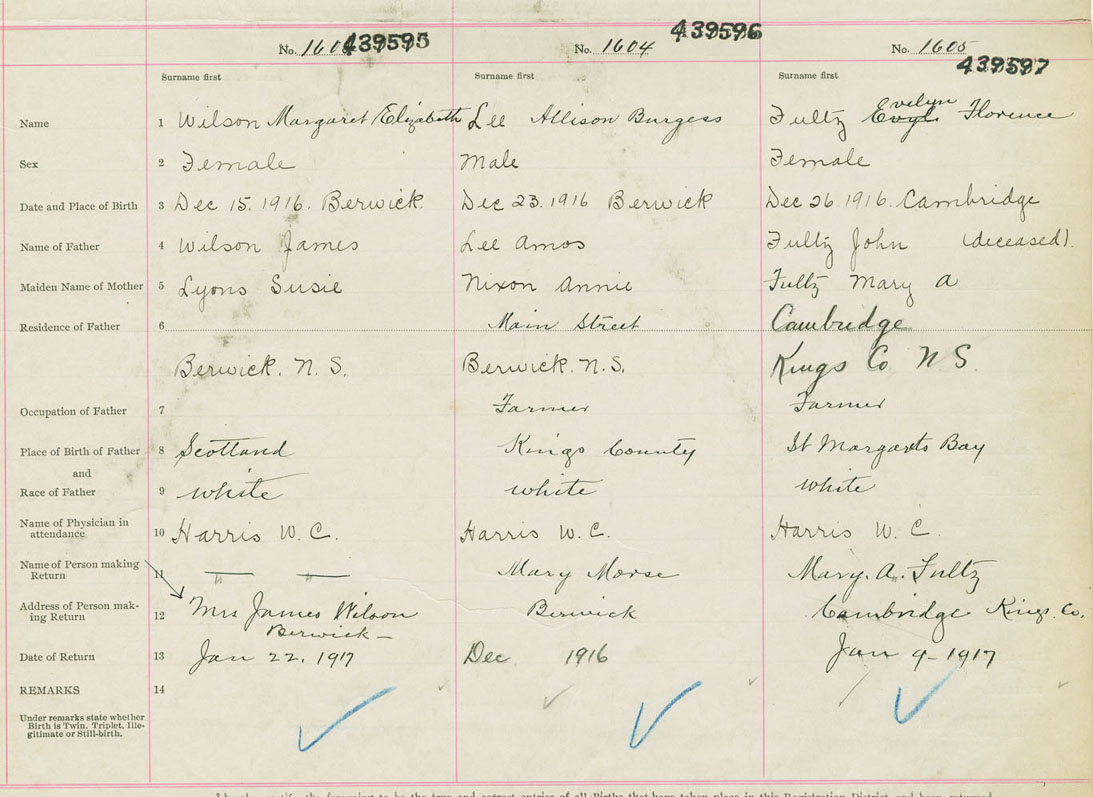 No. 160 439595
No. 1604 439596
No. 1605
439597
Surname first Surname first Surname first
Evelyn
Name 1 Wilson Margaret Elizabeth Lee Allison Burgess Fultz Florence
Sex 2 Female Male Female
Date and Place of Birth 3 Dec 15. 1916. Berwick. Dec 23. 1916 Berwick Dec 26. 1916. Cambridge
Name of Father 4 Wilson James Lee Amos Fultz John (deceased).
Maiden Name of Mother 5 Lyons Susie Nixon Annie Fultz Mary A
Residence of Father 6 Main Street Cambridge
Berwick. N. S. Berwick. N. S. Kings Co N S.
Occupation of Father 7 Farmer Farmer
Place of Birth of Father 8 Scottland Kings County St Margarets Bay
and
Race of Father 9 white white white
Name of Physician in
attendance 10 Harris W. C. Harris W. C. Harris W. C.
Name of Person making
Return 11 — " — " — Mary Morse Mary. A. Fultz
Address of Person mak-
ing Return 12 Mrs James Wilson Berwick Cambridge Kings. Co.
Berwick —
Date of Return 13 Jan 22. 1917 Dec. 1916 Jan 9 - 1917
REMARKS 14
Under remarks state whether
Birth is Twin, Triplet, Ille-
gitimate or Still-birth.
the foregoing to be the true and correct entries of all Births that have taken place in this Registration District and been returned